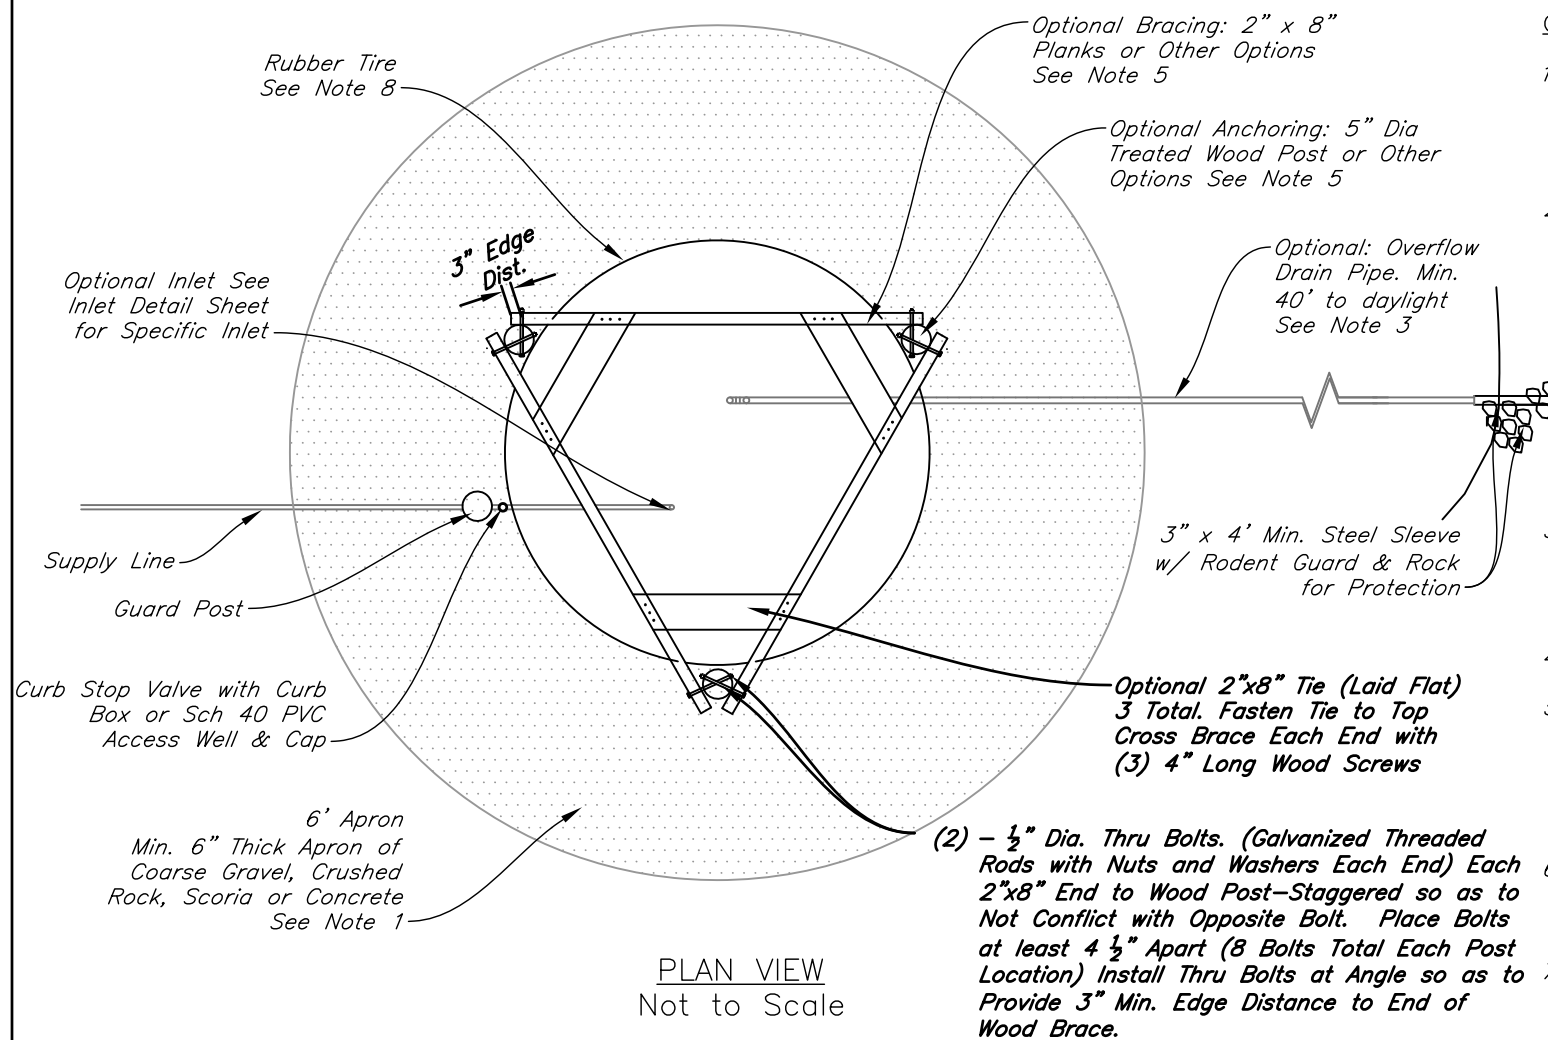 Rubber Tire
See Note 8
Optional Bracing: 2" x 8"
Planks or Other Options
See Note 5
Optional Anchoring: 5" Dia
Treated Wood Post or Other
Options See Note 5
3" Edge
Dist.
Optional Inlet See
Inlet Detail Sheet
for Specific Inlet
Optional: Overflow
Drain Pipe. Min.
40' to daylight
See Note 3
Supply Line
Guard Post
3" x 4' Min. Steel Sleeve
w/ Rodent Guard & Rock
for Protection
Curb Stop Valve with Curb
Box or Sch 40 PVC
Access Well & Cap
Optional 2"x8" Tie (Laid Flat)
3 Total. Fasten Tie to Top
Cross Brace Each End with
(3) 4" Long Wood Screws
6' Apron
Min. 6" Thick Apron of
Coarse Gravel, Crushed
Rock, Scoria or Concrete
See Note 1
(2) – ½" Dia. Thru Bolts. (Galvanized Threaded
Rods with Nuts and Washers Each End) Each
2"x8" End to Wood Post–Staggered so as to
Not Conflict with Opposite Bolt. Place Bolts
at least 4 ½" Apart (8 Bolts Total Each Post
Location) Install Thru Bolts at Angle so as to
Provide 3" Min. Edge Distance to End of
Wood Brace.
PLAN VIEW
Not to Scale